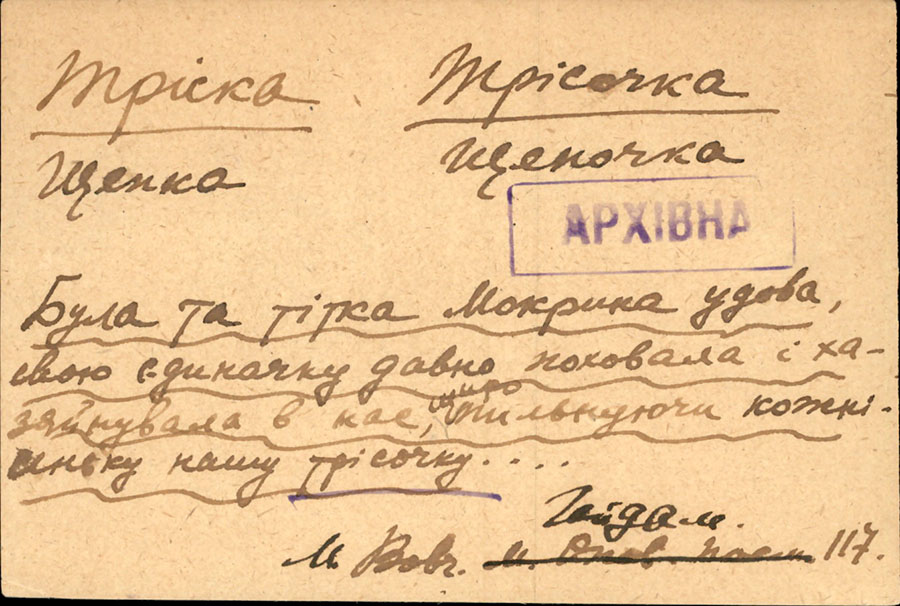 Тріска Трісочка
Щепка Щепочка
АРХІВНА
Була та тітка Мокрина удова,
свою єдиначку давно поховала і ха-
зяйнувала в нас, щиро пильнуючи кожні-
сіньку нашу трісочку....
Гайдам.
М Вовч. 117.